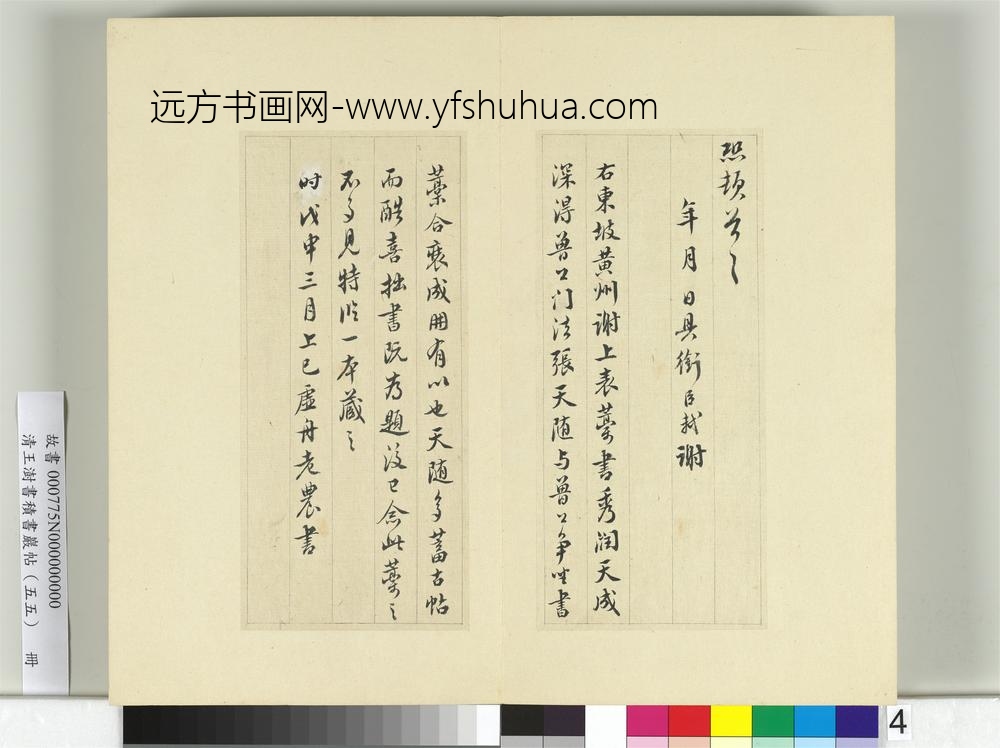 远方书画网-www.yfshuhua.com
頓首
年月日具銜臣軾謝
右東坡黄州謝上表藁書秀润天成
深得魯公门法張天随与魯公争坐書
藁合裹成册有以也天随多蓄古帖
而酷喜拙書既为題後已念此藁之
不多見特临一本藏之
时戊申三月上巳虚舟老農書
故書000775N000000000
清王澍書積書巖帖（五五） 冊
4